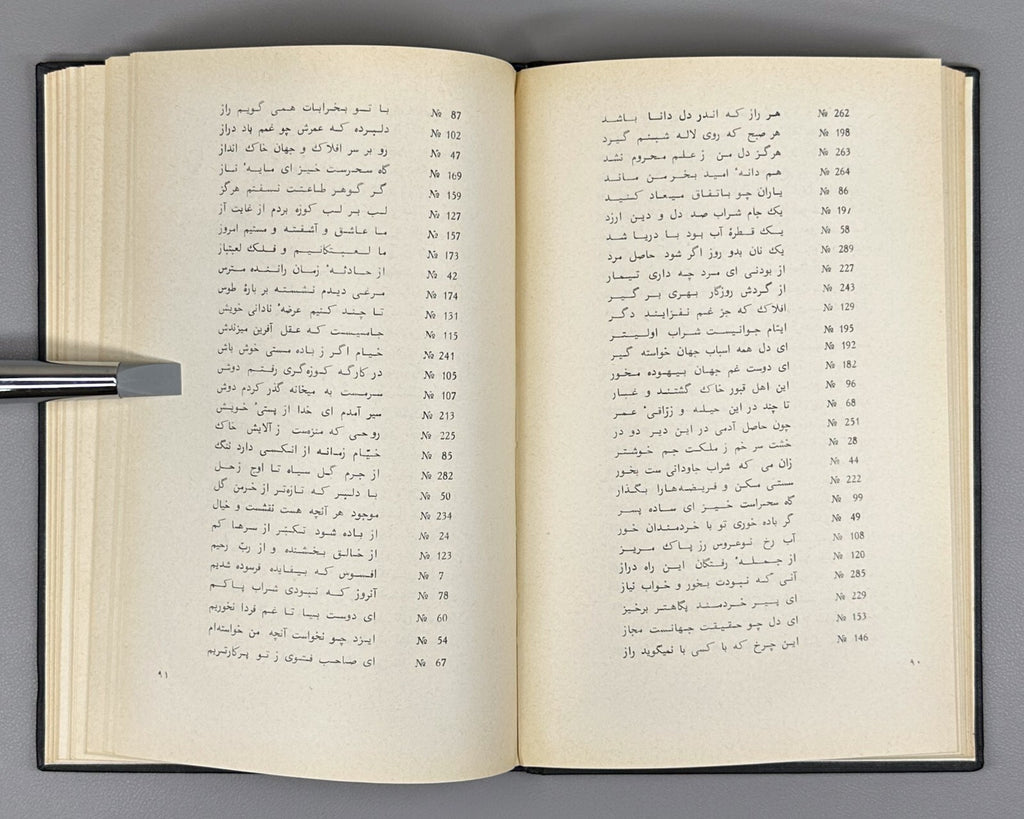 № 262 هر راز که اندر دل دانا باشد
№ 198 هر صبح که روی لاله شبنم گیرد
№ 263 هرگز دل من ز علم محروم نشد
№ 264 هم دانهٔ امید بخرمن ماند
№ 86 یاران چو باتفاق میعاد کنید
№ 197 یک جام شراب صد دل و دین ارزد
№ 58 یک قطرهٔ آب بود با دریا شد
№ 289 یک نان بدو روز اگر شود حاصل مرد
№ 227 از بودنی ای مرد چه داری تیمار
№ 243 از گردش روزگار بهری بر گیر
№ 129 افلاک که جز غم نفزایند دگر
№ 195 ایام جوانیست شراب اولیتر
№ 192 ای دل همه اسباب جهان خواسته گیر
№ 182 ای دوست غم جهان بیهوده مخور
№ 96 این اهل قبور خاک گشتند و غبار
№ 68 تا چند در این حیله و زرّاقی عمر
№ 251 چون حاصل آدمی در این دیر دو در
№ 28 خشت سر خم ز ملکت جم خوشتر
№ 44 زان می که شراب جاودانی ست بخور
№ 222 سستی مکن و فریضه‌هارا بگذار
№ 99 گاه سحراست خیز ای ساده پسر
№ 49 گر باده خوری تو با خردمندان خور
№ 108 آب رخ نوعروس رز پاک مریز
№ 120 از جملهٔ رفتگان این راه دراز
№ 285 آنی که نبودت بخور و خواب نیاز
№ 229 ای پیر خردمند پگاهتر برخیز
№ 153 ای دل چو حقیقت جهانست مجاز
№ 146 این چرخ که با کسی با نمیگوید راز
۹۰
№ 87 با تو بخرابات همی گویم راز
№ 102 دلبرده که عمرش چو غمم باد دراز
№ 47 رو بر سر افلاک و جهان خاک انداز
№ 169 گاه سحرست خیز ای مایهٔ ناز
№ 159 گر گوهر طاعتت نسفتم هرگز
№ 127 لب بر لب کوزه بردم از غایت آز
№ 157 ما عاشق و آشفته و مستیم امروز
№ 173 ما لعبتکانیم و فلک لعبتباز
№ 42 از حادثهٔ زمان راننده مترس
№ 174 مرغی دیدم نشسته بر بارهٔ طوس
№ 131 تا چند کنیم عرضهٔ نادانی خویش
№ 115 جامیست که عقل آفرین میزندش
№ 241 خیام اگر ز باده مستی خوش باش
№ 105 در کارگه کوزه‌گری رفتم دوش
№ 107 سرمست به میخانه گذر کردم دوش
№ 213 سیر آمدم ای خدا از پستی خویش
№ 225 روحی که منزهست ز آلایش خاک
№ 85 خیّام زمانه از آنکسی دارد ننگ
№ 282 از جرم گل سیاه تا اوج زحل
№ 50 با دلبر که تازه‌تر از خرمن گل
№ 234 موجود هر آنچه هست نقشست و خیال
№ 24 از باده شود تکبّر از سرها کم
№ 123 از خالق بخشنده و از ربّ رحیم
№ 7 افسوس که بیفایده فرسوده شدیم
№ 78 آنروز که نبودی شراب پاکم
№ 60 ای دوست بیا تا غم فردا نخوریم
№ 54 ایزد چو نخواست آنچه من خواسته‌ام
№ 67 ای صاحب فتوی ز تو پرکارتریم
۹۱